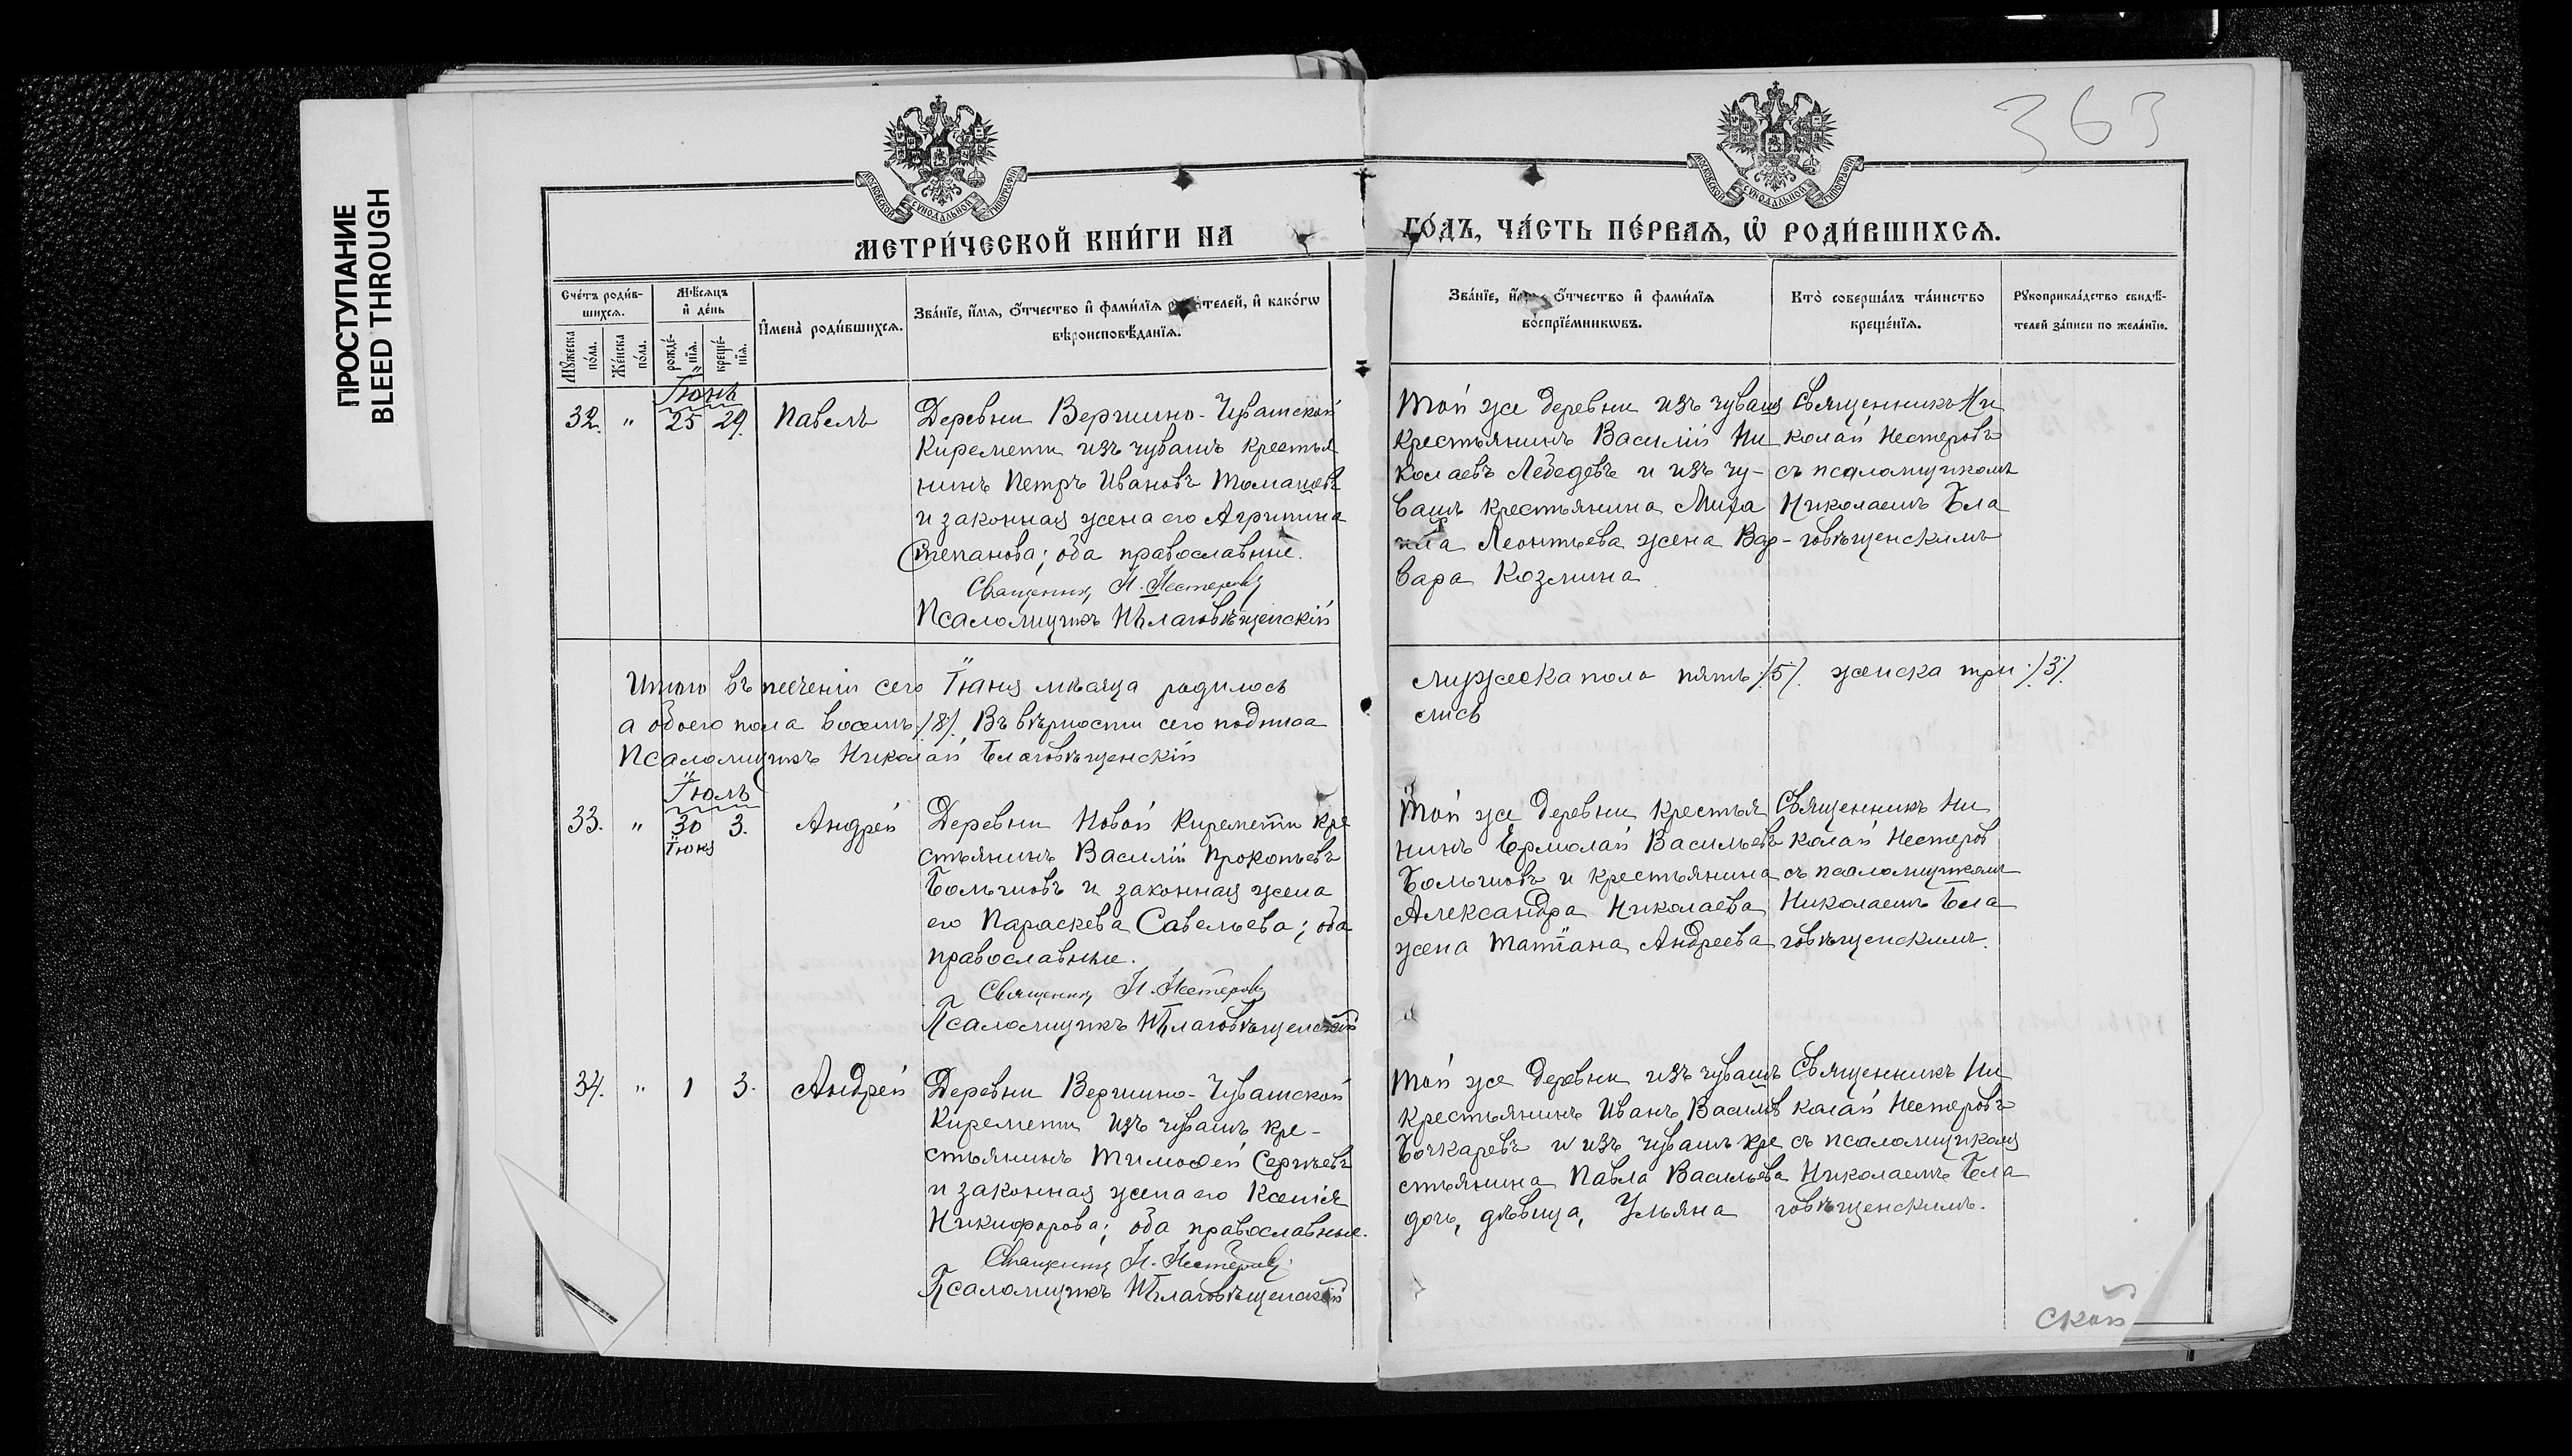 ПРОСТУПАНИЕ
BLEED THROUGH
363
МОСКОВСКОЙ СѴНОДАЛЬНОЙ ТИПОГРАФІИ
МОСКОВСКОЙ СѴНОДАЛЬНОЙ ТИПОГРАФІИ
МЕТРИ́ЧЕСКОЙ КНИ́ГИ НА
ГО́ДЪ, ЧА́СТЬ ПЕ́РВАѦ, Ѽ РОДИ́ВШИХСѦ.
Сче́тъ роди́в-
шихсѧ.
Мꙋ́жеска по́ла.
Же́нска по́ла.
Мѣ́сѧцъ
и҆ де́нь
рожде́-нїѧ.
креще́-нїѧ.
И҆мена̀ роди́вшихсѧ.
Зва́нїе, и҆́мѧ, ѻ҆́тчество и҆ фами́лїѧ роди́телей, и҆ како́гѡ
вѣроисповѣ́данїѧ.
Зва́нїе, и҆́мѧ, ѻ҆́тчество и҆ фами́лїѧ
воспрїе́мникѡвъ.
Кто̀ соверша́лъ та́инство
креще́нїѧ.
Рꙋкоприкла́дство свидѣ́-
телей за́писи по жела́нїю.
Іюнь
32. " 25 29. Павелъ
Деревни Вершино-Чувашской
Киремети изъ чувашъ крестья
нинъ Петръ Ивановъ Томашовъ
и законная жена его Агрипина
Степанова; оба православные.
Священникъ Н. Нестеровъ
Псаломщикъ Н. Благовѣщенскій
Той же деревни изъ чувашъ
крестьянинъ Василій Ни
колаевъ Лебедевъ и изъ чу-
вашъ крестьянина Миха
ила Леонтьева жена Вар-
вара Козмина
Священникъ Ни
колай Нестеровъ
съ псаломщикомъ
Николаемъ Бла
говѣщенскимъ
Итого въ теченіи сего Іюня мѣсяца родилось
мужеска пола пять /5/. женска три /3/.
а обоего пола восемь /8/. Въ вѣрности сего подписа
лись
Псаломщикъ Николай Благовѣщенскій
Іюль
33. " 30 3. Андрей
Іюня
Деревни Новой Киремети кре
стьянинъ Василій Прокопьевъ
Большовъ и законная жена
его Параскева Савельева; оба
православные.
Священникъ Н. Нестеровъ
Псаломщикъ Н. Благовѣщенскій
Той же деревни крестья
нинъ Ермолай Васильевъ
Большовъ и крестьянина
Александра Николаева
жена Татіана Андреева
Священникъ Ни
колай Нестеров
съ псаломщикомъ
Николаемъ Бла
говѣщенскимъ.
34. " 1 3. Андрей
Деревни Вершино-Чувашской
Киремети изъ чувашъ кре-
стьянинъ Тимоѳей Сергѣевъ
и законная жена его Ксенія
Никифорова; оба православные.
Священникъ Н. Нестеровъ
Псаломщикъ Н. Благовѣщенскій
Той же деревни изъ чувашъ
крестьянинъ Иванъ Васильевъ
Бочкаревъ и изъ чувашъ кре
стьянина Павла Васильева
дочь, дѣвица, Ульяна
Священникъ Ни
колай Нестеровъ
съ псаломщикомъ
Николаемъ Бла
говѣщенскимъ.
ской